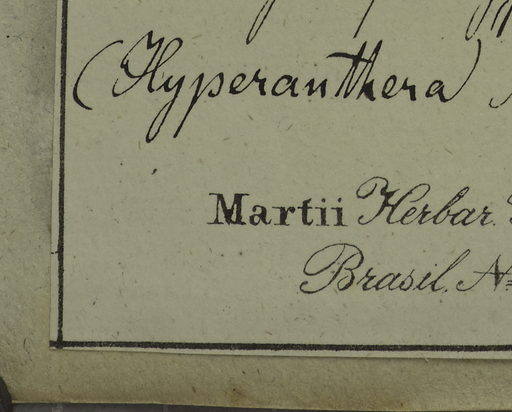 (Hyperanthera)
Martii Herbar.
Brasil. №